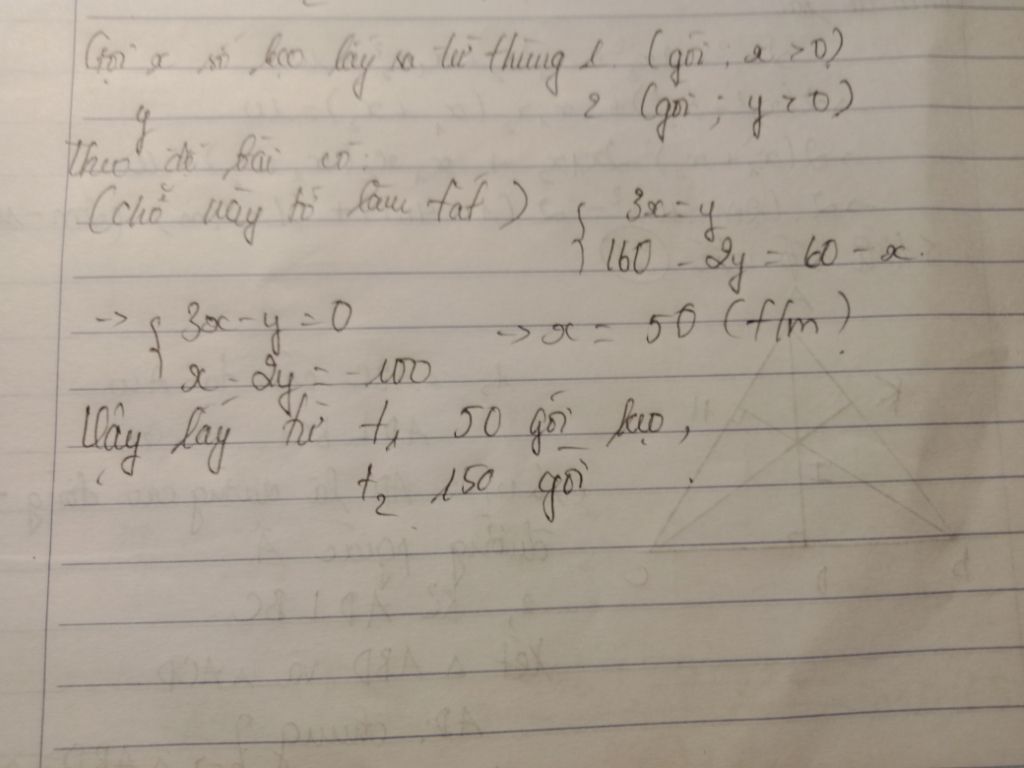 Gọi x số kẹo lấy ra từ thùng 1 (gói; x > 0)
y 2 (gói; y > 0)
Theo đề bài có:
(chỗ này tớ làm tắt) { 3x = y
160 - 2y = 60 - x.
-> { 3x - y = 0 -> x = 50 (t/m)
x - 2y = -100
Vậy lấy từ t1 50 gói kẹo,
t2 150 gói